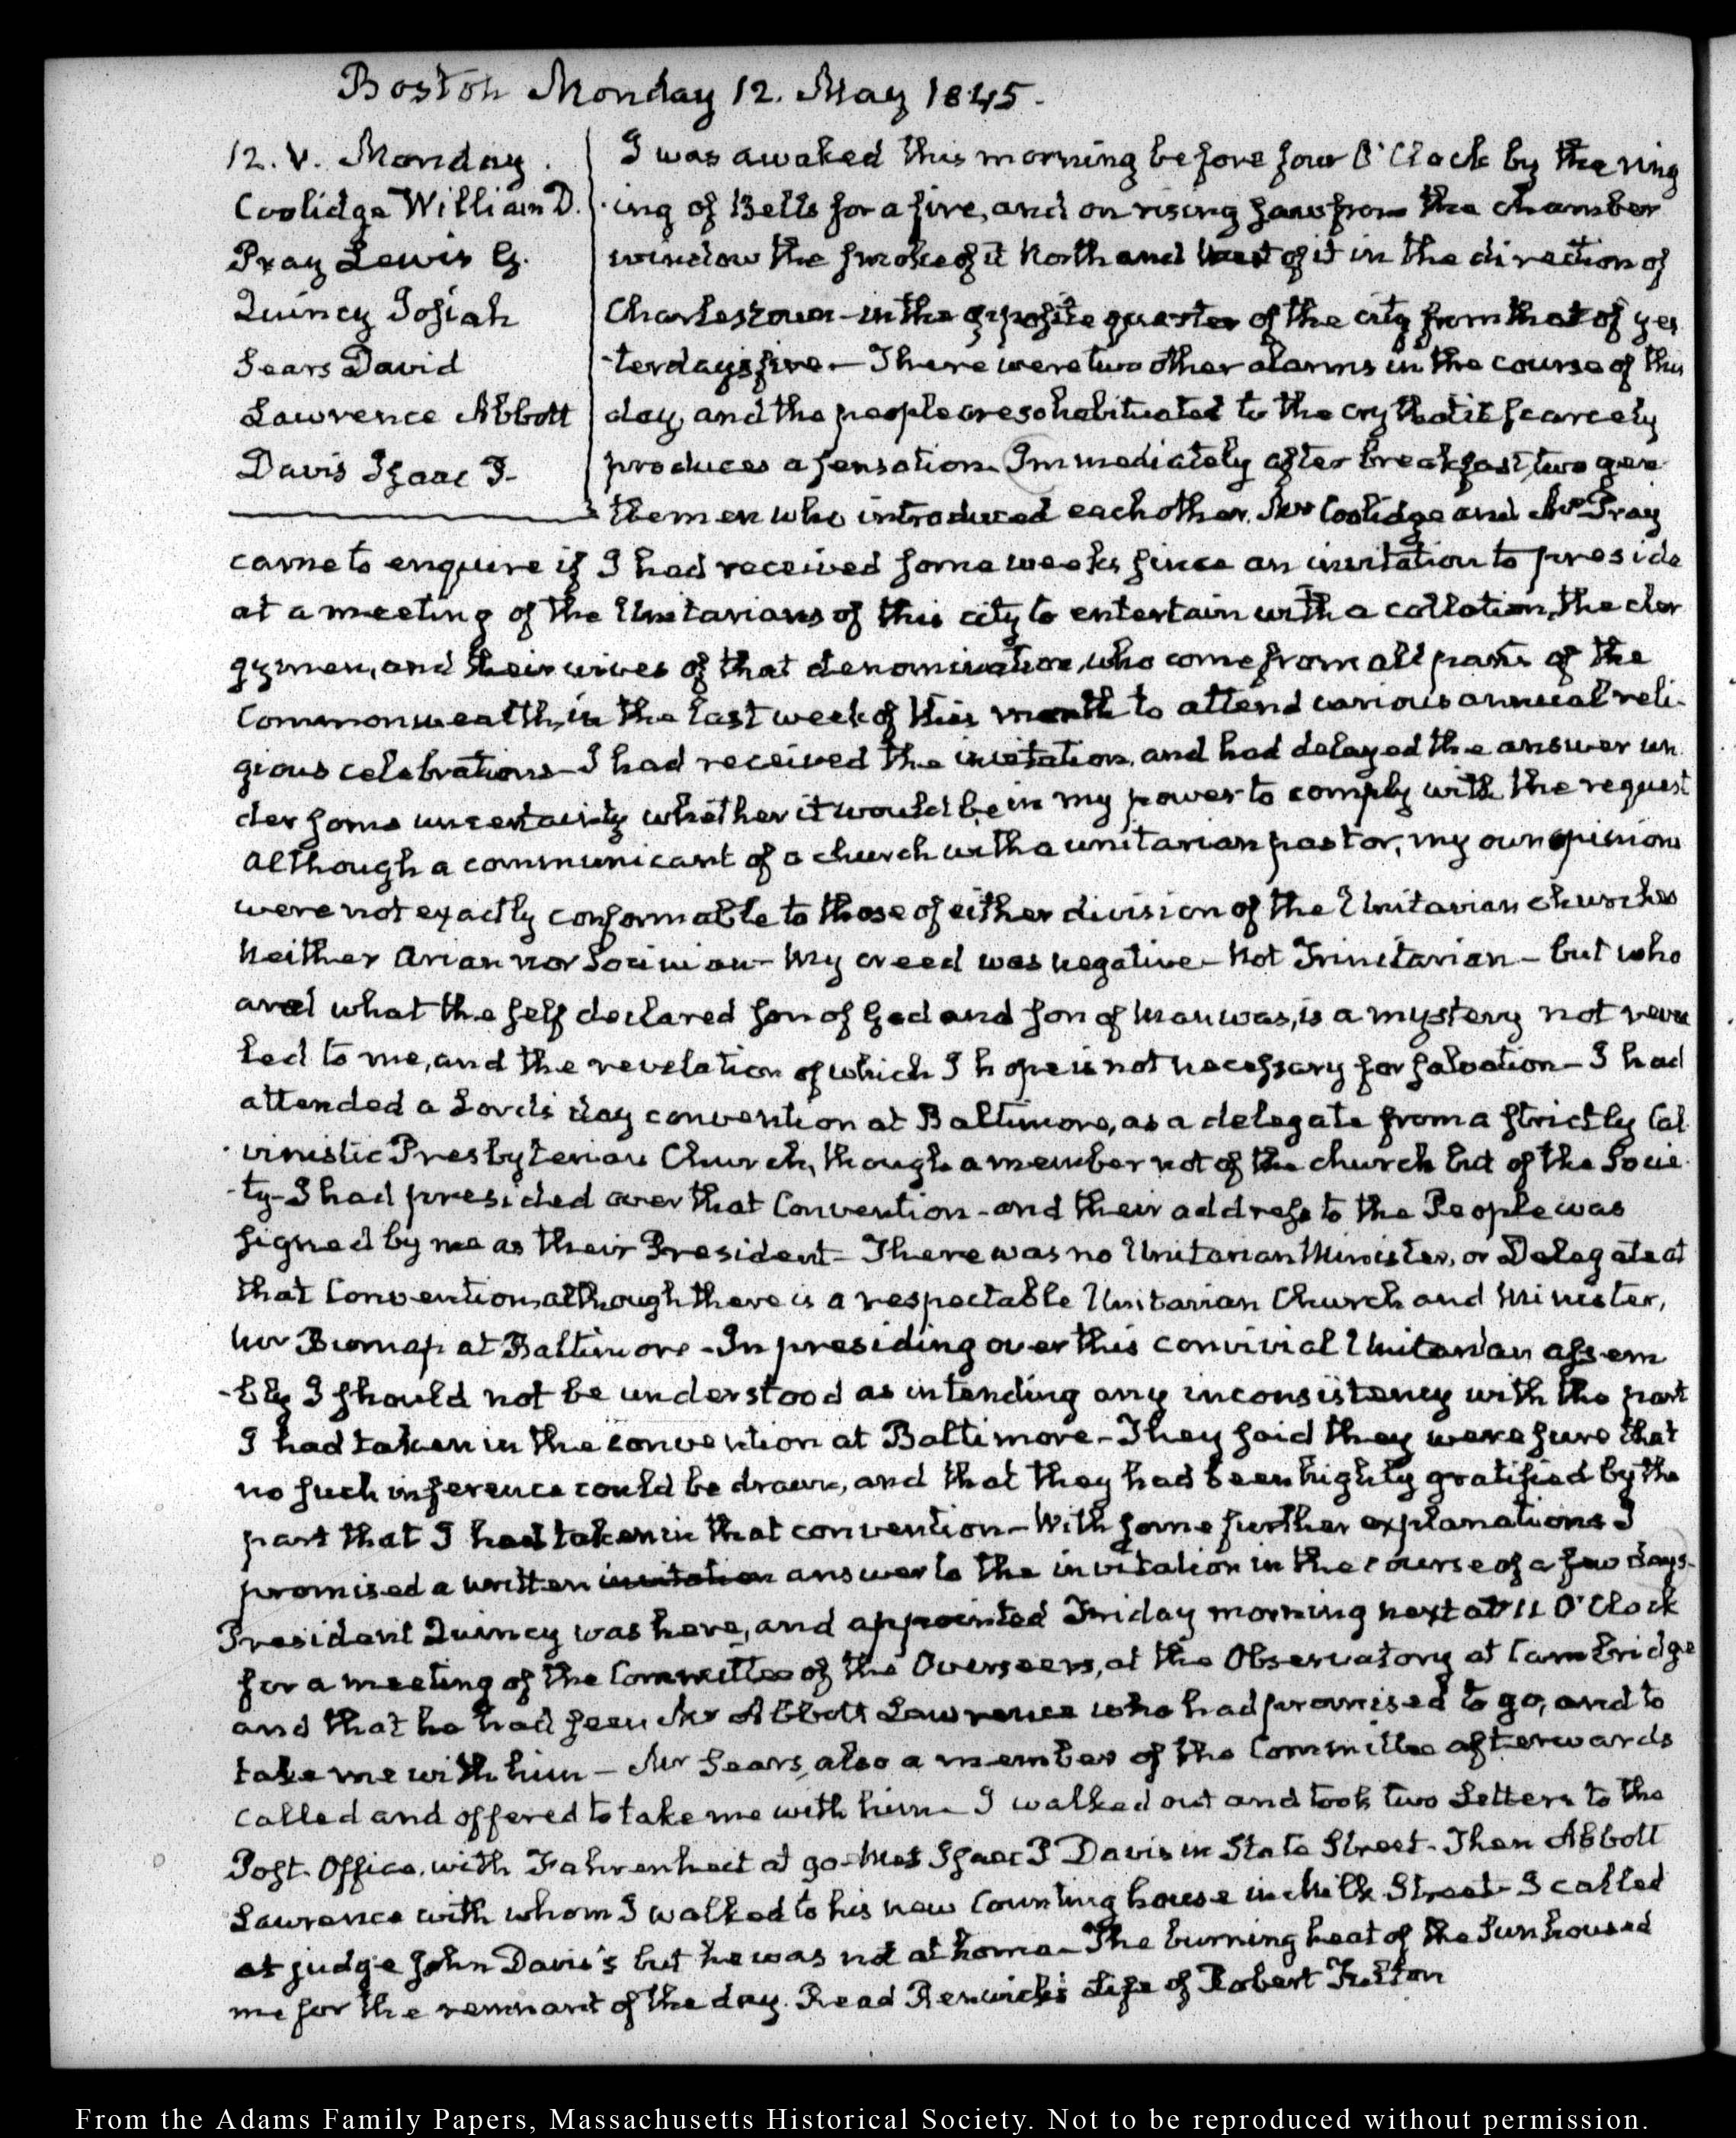 Boston Monday 12. May 1845.
12. V. Monday.
Coolidge William D.
Pray Lewis G.
Quincy Josiah
Sears David
Lawrence Abbott
Davis Isaac P.
I was awaked this morning before four O'Clock by the ring
ing of Bells for a fire, and on rising saw from the chamber
window the smoke of it North and West of it in the direction of
Charlestown - in the opposite quarter of the city from that of yes
-terday's fire - There were two other alarms in the course of this
day, and the people are so habituated to the cry that it scarcely
produces a sensation. Immediately after breakfast, two gen
tlemen who introduced each other. Mr Coolidge and Mr Pray
came to enquire if I had received some weeks since an invitation to preside
at a meeting of the Unitarians of this city to entertain with a collation, the cler
gymen, and their wives of that denomination, who come from all parts of the
Commonwealth, in the last week of this month to attend various annual reli-
gious celebrations - I had received the invitation, and had delayed the answer un
der some uncertainty whether it would be in my power to comply with the request
Although a communicant of a church with a unitarian pastor, my own opinions
were not exactly conformable to those of either division of the Unitarian churches
Neither Arian nor Socinian - My creed was negative - Not Trinitarian - but who
and what the self declared son of God and son of man was, is a mystery not revea
led to me, and the revelation of which I hope is not necessary for salvation - I had
attended a Lord's day convention at Baltimore, as a delegate from a strictly Cal
vinistic Presbyterian Church, though a member not of the church but of the Socie
-ty - I had presided over that Convention - and their address to the People was
signed by me as their President - There was no Unitarian Minister, or Delegate at
that Convention, although there is a respectable Unitarian Church and Minister,
Mr Burnap at Baltimore - In presiding over this convivial Unitarian assem
-bly I should not be understood as intending any inconsistency with the part
I had taken in the convention at Baltimore - They said they were sure that
no such inference could be drawn, and that they had been highly gratified by the
part that I had taken in that convention - With some further explanations I
promised a written invitation answer to the invitation in the course of a few days -
President Quincy was here, and appointed Friday morning next at 11 O'Clock
for a meeting of the Committee of the Overseers, at the Observatory at Cambridge
and that he had seen Mr Abbott Lawrence who had promised to go, and to
take me with him - Mr Sears, also a member of the Committee afterwards
called and offered to take me with him - I walked out and took two Letters to the
Post-Office, with Fahrenheit at 90 - Met Isaac P Davis in State Street - Then Abbott
Lawrence with whom I walked to his new Counting house in Milk Street - I called
at judge John Davis's but he was not at home - The burning heat of the Sun housed
me for the remnant of the day. Read Renwick's Life of Robert Fulton
From the Adams Family Papers, Massachusetts Historical Society. Not to be reproduced without permission.